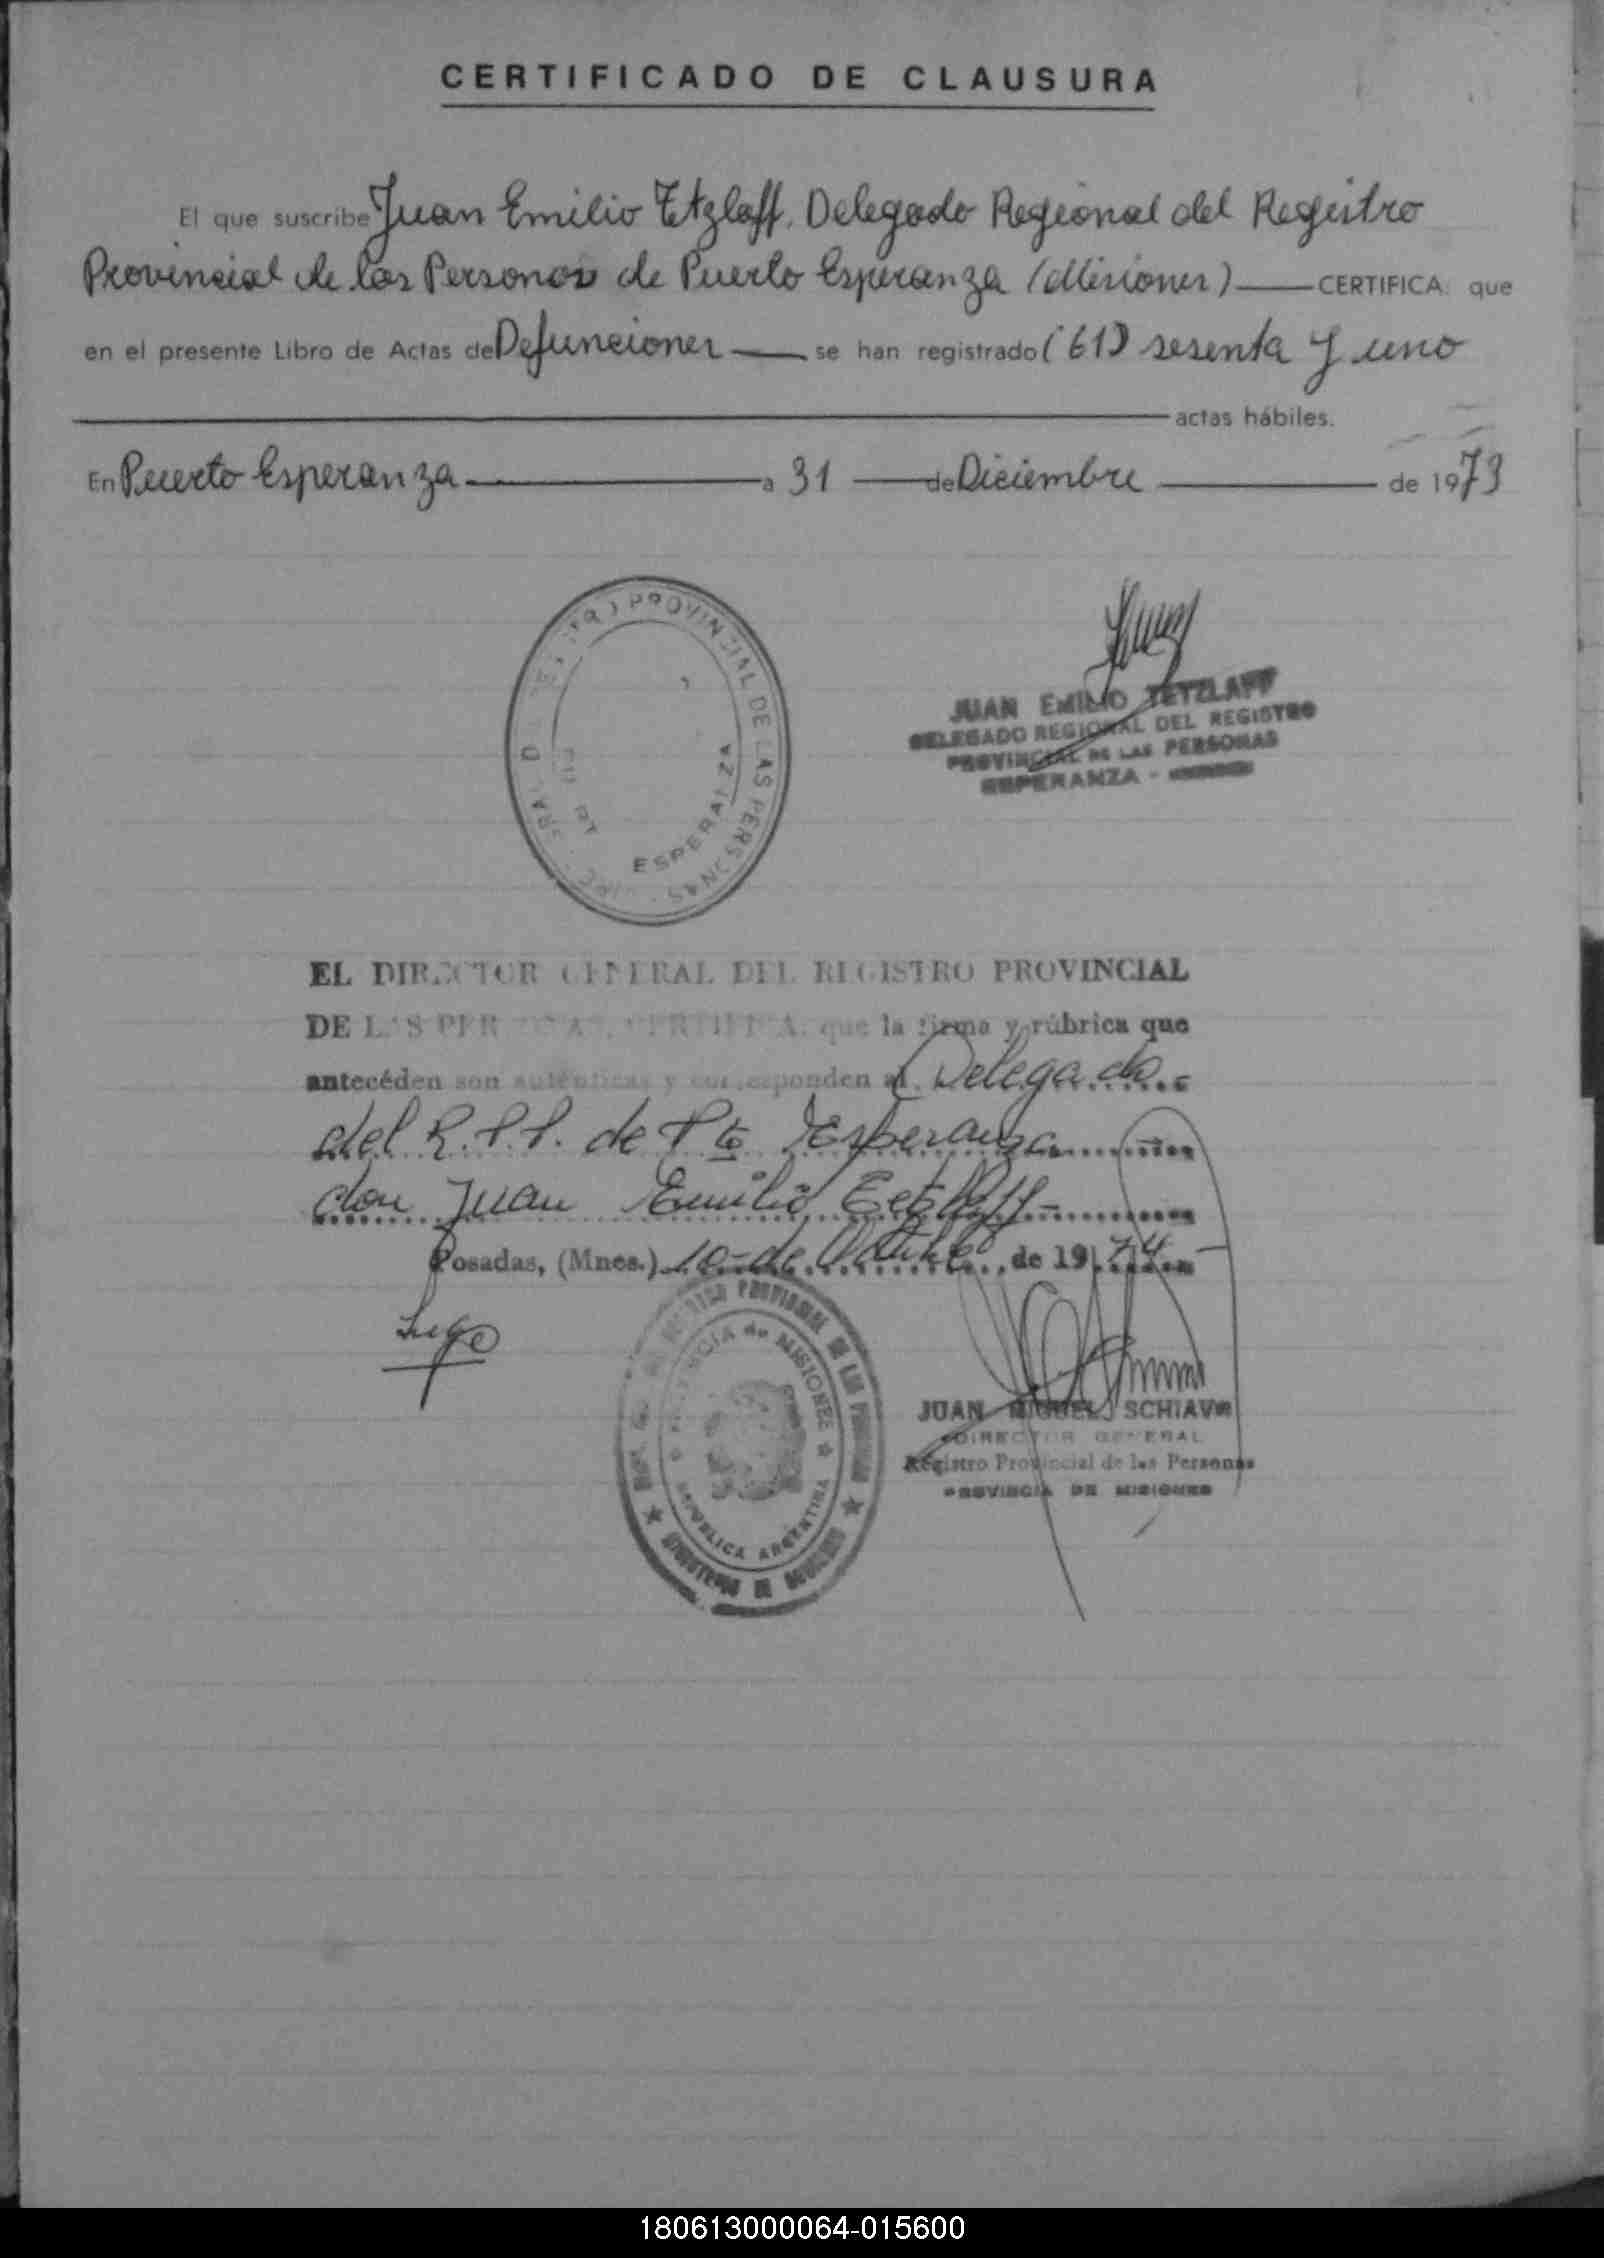 CERTIFICADO DE CLAUSURA
El que suscribe Juan Emilio Tetzlaff, Delegado Regional del Registro
Provincial de las Personas de Puerto Esperanza (Misiones) — CERTIFICA: que
en el presente Libro de Actas de Defunciones — se han registrado (61) sesenta y uno
actas hábiles.
En Puerto Esperanza — a 31 — de Diciembre — de 1973
PROVINCIAL DE LAS PERSONAS
ESPERANZA
JUAN EMILIO TETZLAFF
DELEGADO REGIONAL DEL REGISTRO
PROVINCIAL DE LAS PERSONAS
ESPERANZA -
EL DIRECTOR GENERAL DEL REGISTRO PROVINCIAL
DE LAS PERSONAS, CERTIFICA: que la firma y rúbrica que
antecéden son auténticas y corresponden al Delegado
del R.P.P. de Pto Esperanza
don Juan Emilio Tetzlaff-
Posadas, (Mnes.) 10- de de 1974
PROVINCIAL DE LAS PERSONAS
PROVINCIA de MISIONES
REPUBLICA ARGENTINA
MINISTERIO DE GOBIERNO
JUAN MIGUEL SCHIAVI
DIRECTOR GENERAL
Registro Provincial de las Personas
PROVINCIA DE MISIONES
180613000064-015600